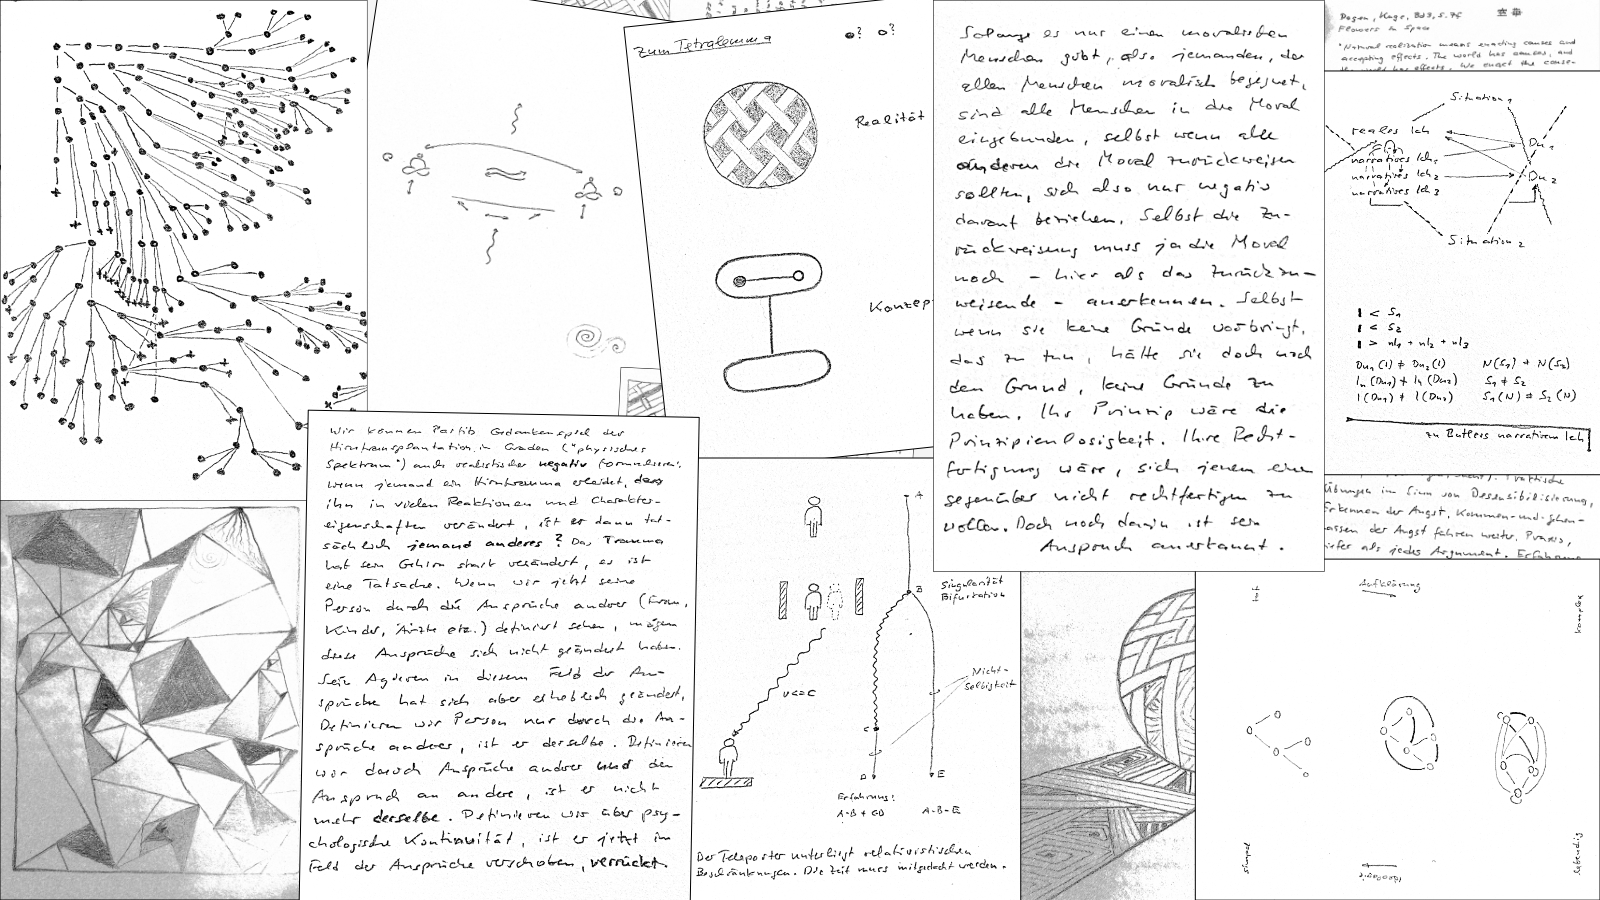 Zum Tetralemma
? ?
Realität
Konzep
Solange es nur einen moralischen
Menschen gibt, also jemanden, der
allen Menschen moralisch begegnet,
sind alle Menschen in die Moral
eingebunden, selbst wenn alle
anderen die Moral zurückweisen
sollten, sich also nur negativ
darauf beziehen. Selbst die Zu-
rückweisung muss ja die Moral
noch – hier als das Zurückzu-
weisende – anerkennen. Selbst
wenn sie keine Gründe vorbringt,
das zu tun, hätte sie doch noch
den Grund, keine Gründe zu
haben. Ihr Prinzip wäre die
Prinzipienlosigkeit. Ihre Recht-
fertigung wäre, sich jenem
gegenüber nicht rechtfertigen zu
wollen. Doch noch darin ist sein
Anspruch anerkannt.
Dogen, Hage, Bd 3, S. 75
Flowers in Space
"Natural realization means exacting causes and
accepting effects. The world has causes, and
the world has effects. We enact the cause-
Situation 1
reales Ich
Du 1
narratives Ich 1
narratives Ich 2
Du 2
narratives Ich 3
Situation 2
I < S1
I < S2
I > nI1 + nI2 + nI3
Du1 (I) ≠ Du2 (I) N(S1) ≠ N(S2)
In (Du1) ≠ In (Du2) S1 ≠ S2
I (Du1) ≠ I (Du2) S1 (N) ≠ S2 (N)
zu Butlers narrativem Ich
Praktische
Übungen im Sinn von Desensibilisierung,
Erkennen der Angst, Kommen-und-Gehen-
lassen der Angst führen weiter. Praxis,
tiefer als jedes Argument. Erfahrung
Wir können Parfits Gedankenspiel der
Hirntransplantation in Graden ("physisches
Spektrum") auch realistischer negativ formulieren:
wenn jemand ein Hirntrauma erleidet, dass
ihn in vielen Reaktionen und Charakter-
eigenschaften verändert, ist er dann tat-
sächlich jemand anderes? Das Trauma
hat sein Gehirn stark verändert, es ist
eine Tatsache. Wenn wir jetzt seine
Person durch die Ansprüche anderer (Frau,
Kinder, Ärzte etc.) definiert sehen, mögen
diese Ansprüche sich nicht geändert haben.
Sein Agieren in diesem Feld der An-
sprüche hat sich aber erheblich geändert.
Definieren wir Person nur durch die An-
sprüche anderer, ist er derselbe. Definieren
wir durch Ansprüche anderer und den
Anspruch an andere, ist er nicht
mehr derselbe. Definieren wir über psy-
chologische Kontinuität, ist er jetzt im
Feld der Ansprüche verschoben, verrückt.
A
B
Singularität
Bifurkation
v<=c
Nicht-
Selbigkeit
C
D E
Erfahrung:
A-B + CD A-B-E
Der Teleporter unterliegt relativistischen
Beschränkungen. Die Zeit muss mitgedacht werden.
Aufklärung
tot
komplex
simpel
lebendig
Ideologie